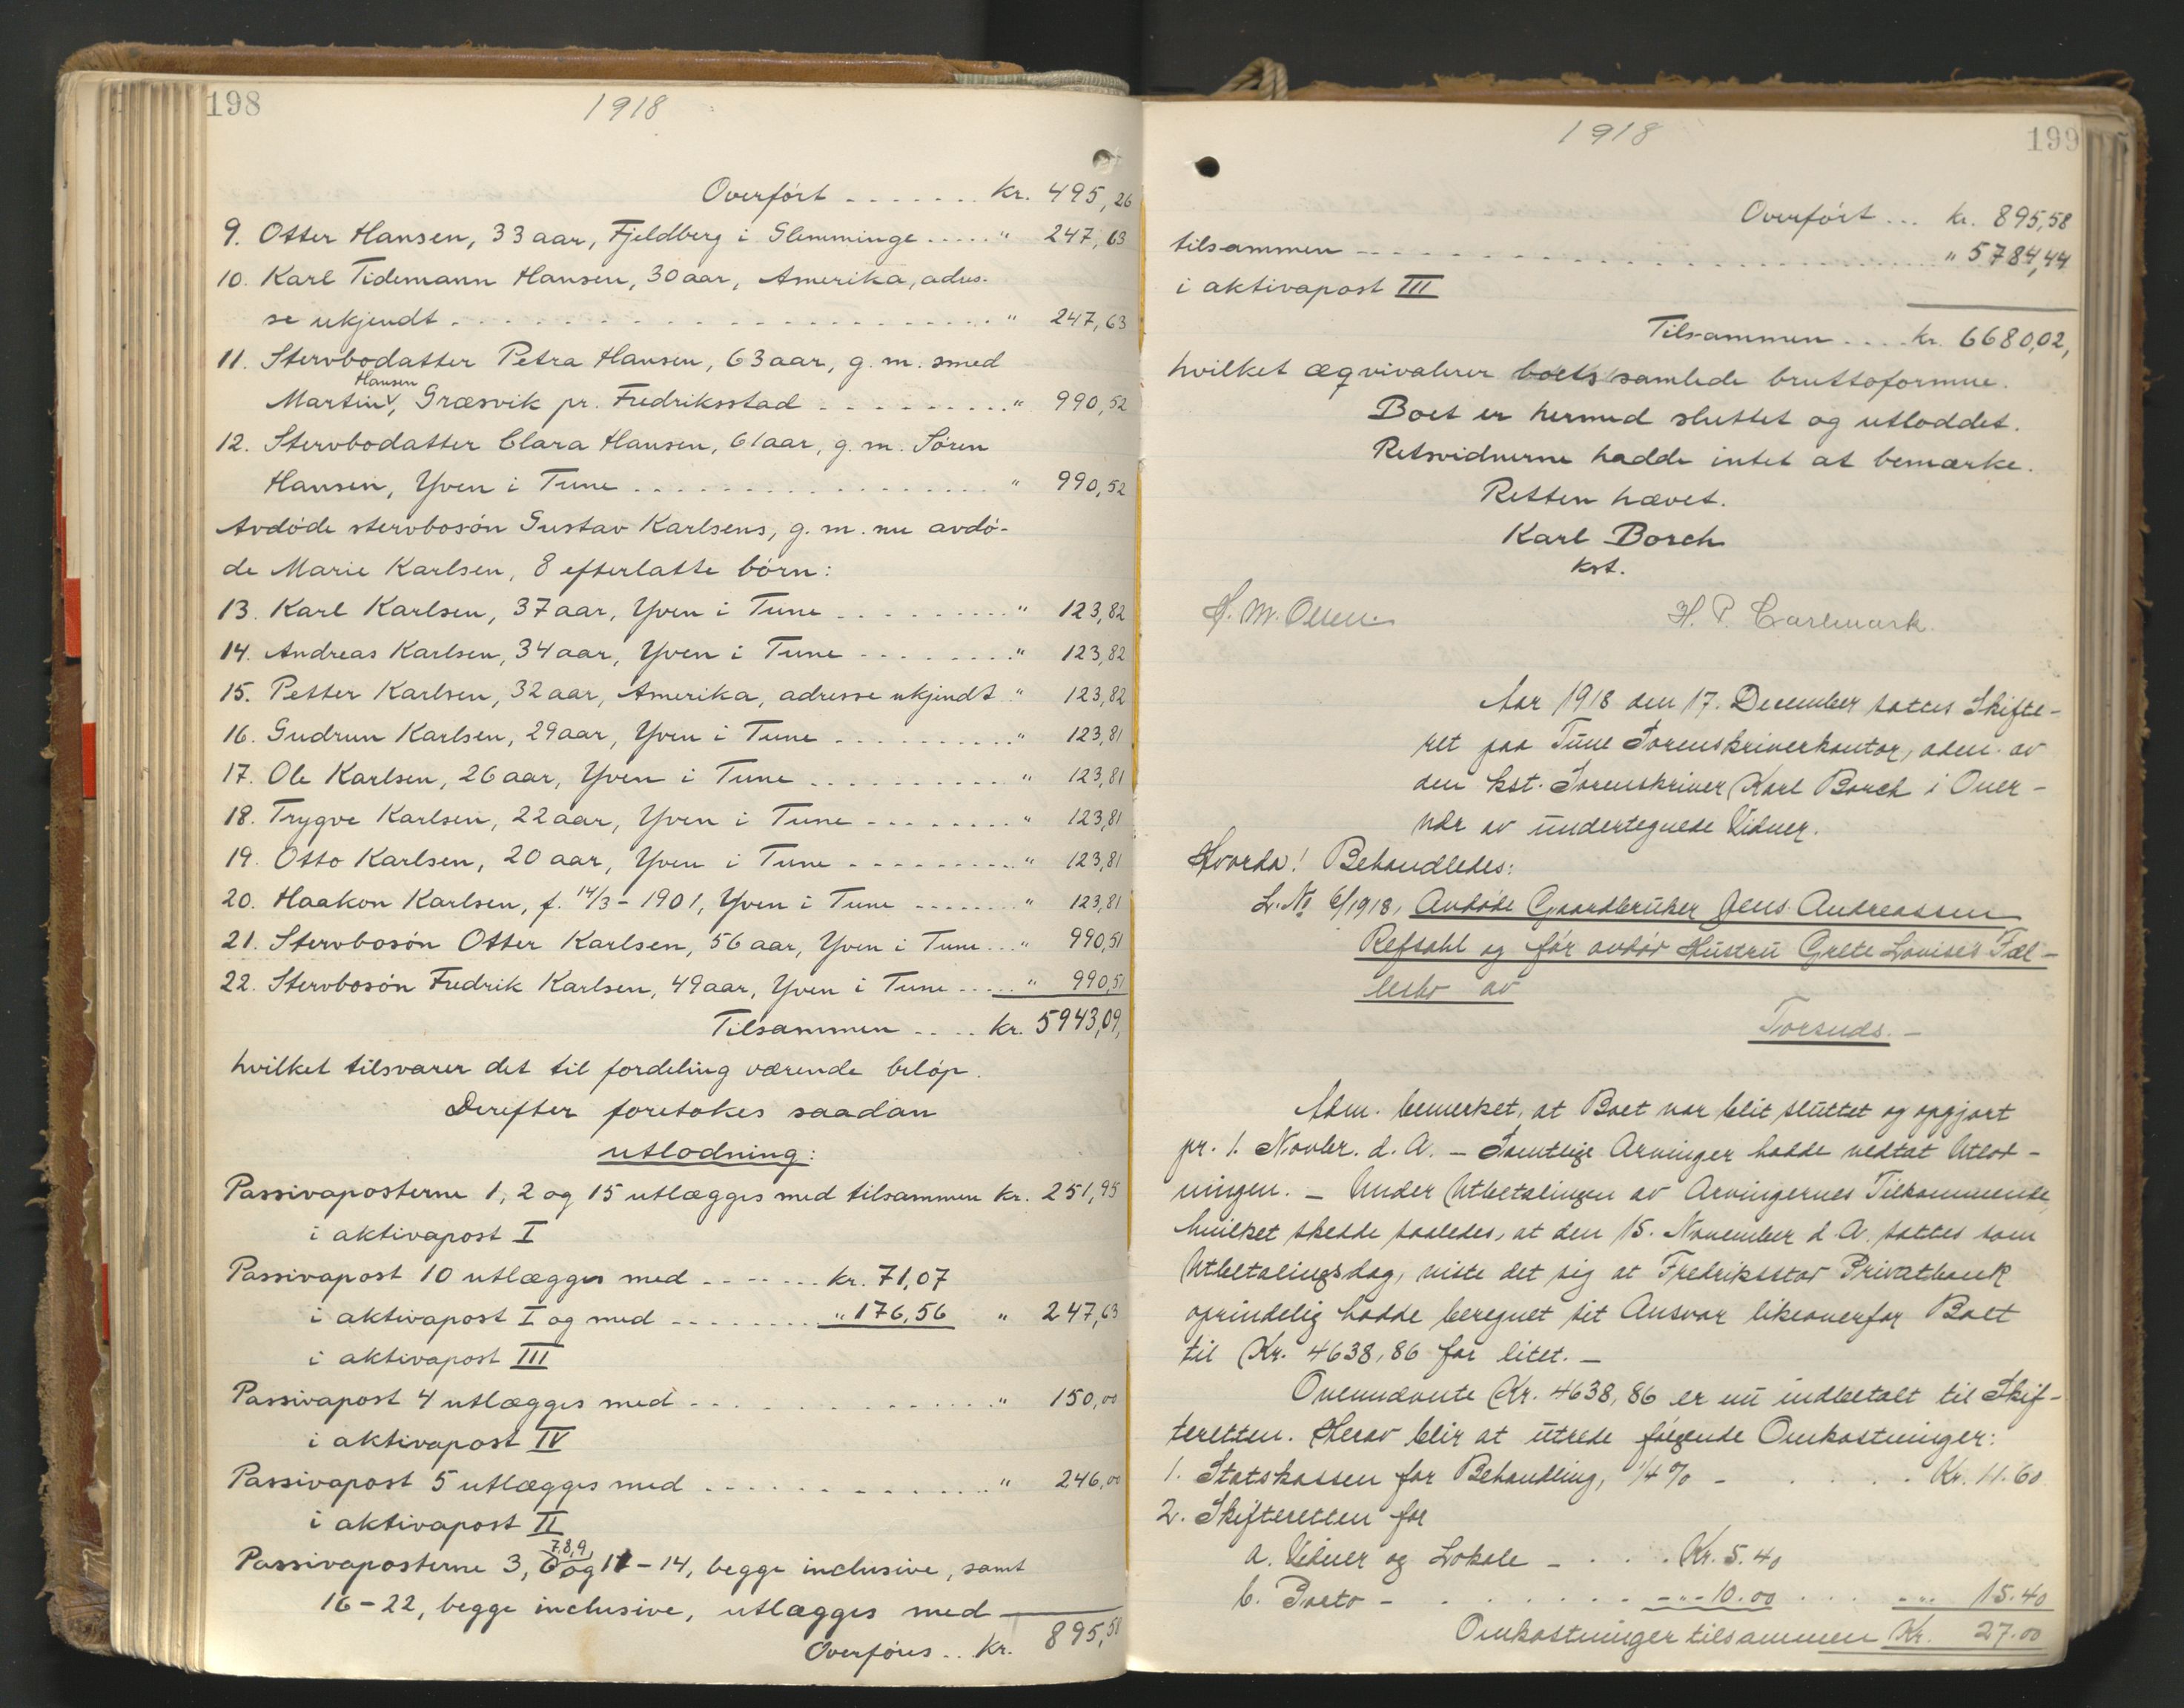 198
1918
Overført ....... kr. 495,26
9. Otter Hansen, 33 aar, Fjeldberg i Glemminge ..... " 247,63
10. Karl Tidemann Hansen, 30 aar, Amerika, adres-
se ukjendt ....................... " 247,63
11. Stervbodatter Petra Hansen, 63 aar, g. m. smed
Hansen
Martin ᵛ, Græsvik pr. Fredriksstad .......... " 990,52
12. Stervbodatter Clara Hansen, 61 aar, g. m. Søren
Hansen, Yven i Tune .................. " 990,52
Avdøde stervbosøn Gustav Karlsens, g. m. nu avdø-
de Marie Karlsen, 8 efterlatte børn:
13. Karl Karlsen, 37 aar, Yven i Tune .......... " 123,82
14. Andreas Karlsen, 34 aar, Yven i Tune ........ " 123,82
15. Petter Karlsen, 32 aar, Amerika, adresse ukjendt " 123,82
16. Gudrun Karlsen, 29 aar, Yven i Tune .......... " 123,81
17. Ole Karlsen, 26 aar, Yven i Tune ........... " 123,81
18. Trygve Karlsen, 22 aar, Yven i Tune ........ " 123,81
19. Otto Karlsen, 20 aar, Yven i Tune .......... " 123,81
20. Haakon Karlsen, f. 14/3 - 1901, Yven i Tune ........ " 123,81
21. Stervbosøn Otter Karlsen, 56 aar, Yven i Tune ... " 990,51
22. Stervbosøn Fredrik Karlsen, 49 aar, Yven i Tune ..... " 990,51
Tilsammen .... kr. 5943,09,
hvilket tilsvarer det til fordeling værende beløp.
Derefter foretokes saadan
utlodning:
Passivaposterne 1, 2 og 15 utlægges med tilsammen kr. 251,95
i aktivapost I
Passivapost 10 utlægges med ....... kr. 71,07
i aktivapost I og med ......... " 176,56 " 247,63
i aktivapost III
Passivapost 4 utlægges med ............... " 150,00
i aktivapost IV
Passivapost 5 utlægges med .............. " 246,00
i aktivapost II
7,8,9,
Passivaposterne 3, 6 og 11 - 14, begge inclusive, samt
16 - 22, begge inclusive, utlægges med
Overføres .. kr. 895,58
1918
199
Overført ... kr. 895,58
tilsammen ........................... " 5784,44
i aktivapost III
Tilsammen .... kr. 6680,02,
hvilket æqvivalerer boets samlede bruttoformue.
Boet er hermed sluttet og utloddet.
Retsvidnerne hadde intet at bemærke.
Retten hævet.
Karl Borch
kst.
H. M. Olsen. H. P. Carlmark.
Aar 1918 den 17. December sattes Skifte-
ret paa Tune Sorenskriverkontor, adm. av
den kst. Sorenskriver Karl Borch i Over-
vær av undertegnede Vidner.
Hvorda! Behandledes:
L. No 6/1918, Avdøde Gaardbruker Jens Andreassen
Refsahl og før avdød Hustru Grete Lovises Fæl-
lesbo av
Torsnes. -
Adm. bemerket, at Boet var blit sluttet og opgjort
pr. 1. Novbr. d. A. - Samtlige Arvinger hadde vedtat Utlod-
ningen. - Under Utbetalingen av Arvingernes Tilkommende,
hvilket skedde saaledes, at den 15. November d. A. sattes som
Utbetalingsdag, viste det sig at Fredriksstad Privatbank
oprindelig hadde beregnet sit Ansvar likeoverfor Boet
til Kr. 4638,86 for litet. -
Ovennævnte Kr. 4638,86 er nu indbetalt til Skif-
teretten. Herav blir at utrede følgende Omkostninger:
1. Statskassen for Behandling, 1/4 % - .... Kr. 11.60
2. Skifteretten for
a. Vidner og Lokale - .... Kr. 5.40
b. Porto - ....... -"- 10.00 ... -"- 15.40
Omkostninger tilsammen Kr. 27.00